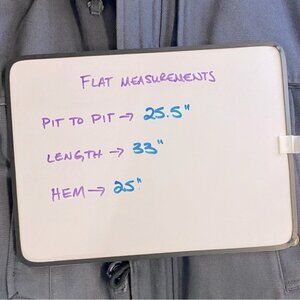 FLAT MEASUREMENTS
PIT TO PIT → 25.5"
LENGTH → 33"
HEM → 25"